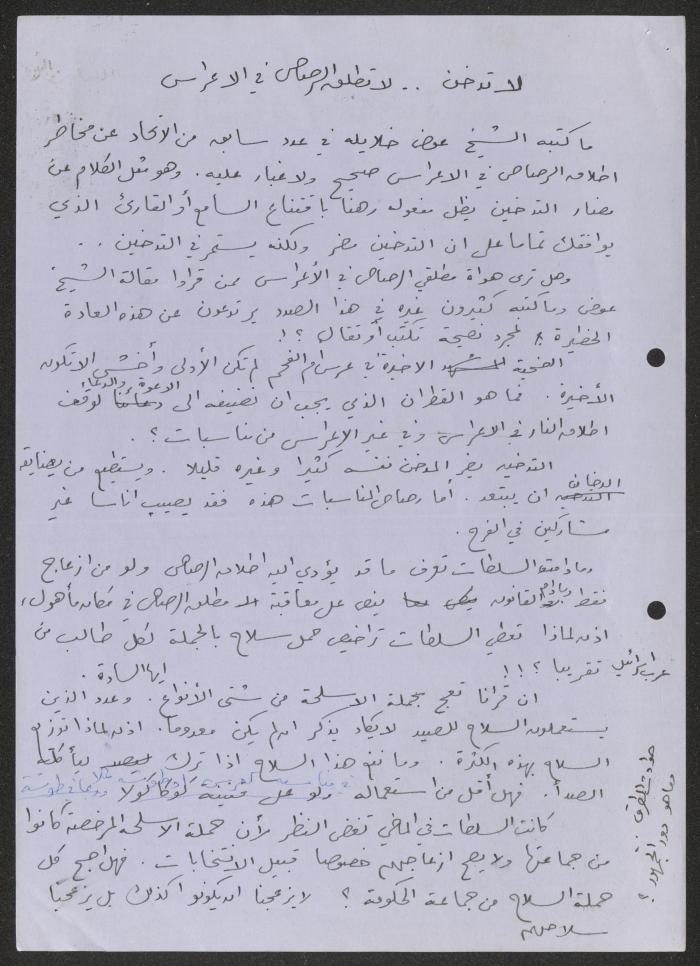 لا تدخن .. لا تطلق الرصاص في الاعراس
ما كتبه الشيخ عوض خلايله في عدد سابق من الاتحاد عن مخاطر
اطلاق الرصاص في الاعراس صحيح ولا غبار عليه. وهو مثل الكلام عن
مضار التدخين يظل مفعوله رهنا باقتناع السامع أو القارئ الذي
يوافقك تماما على ان التدخين مضر ولكنه يستمر في التدخين ..
وهل ترى هواة مطلقي الرصاص في الأعراس ممن قراوا مقالة الشيخ
عوض وما كتبه كثيرون غيره في هذا الصدد يرتدعون عن هذه العادة
الخطيرة لمجرد نصيحة تكتب أو تقال ؟!
الضحية الاخيرة في عرس ام الفحم لم تكن الأولى وأخشى الا تكون
الأخيرة. فما هو القطران الذي يجب ان نضيفه الى الادعية والدعاء لوقف
اطلاق النار في الاعراس وفي غير الاعراس من مناسبات ؟.
التدخين يضر المدخن نفسه كثيرا وغيره قليلا. ويستطيع من يضايقه
الدخان ان يبتعد. أما رصاص المناسبات هذه فقد يصيب اناسا غير
مشاركين في الفرح.
وما دامت السلطات تعرف ما قد يؤدي اليه اطلاق الرصاص ولو من ازعاج
فقط وما دام القانون ينص على معاقبة مطلق الرصاص في مكان مأهول،
اذن لماذا تعطي السلطات تراخيص حمل سلاح بالجملة لكل طالب من
عرب اسرائيل تقريبا ؟!! ايها السادة.
ان قرانا تعج بحملة الاسلحة من شتى الأنواع. وعدد الذين
يستعملون السلاح للصيد لا يكاد يذكر ان لم يكن معدوما. اذن لماذا توزع
السلاح بهذه الكثرة. وما نفع هذا السلاح اذا ترك يأكله
الصدأ. فهل أقل من استعماله ولو على قنينة كوكا كولا
كانت السلطات في الماضي تغض النظر لأن حملة الاسلحة المرخصة كانوا
من جماعتها ولا يصح ازعاجهم خصوصا قبيل الانتخابات. فهل اصبح كل
حملة السلاح من جماعة الحكومة ؟ لا يزعجنا ان يكونوا كذلك بل يزعجنا
سلاحهم
وما هو دور الجمهور ؟